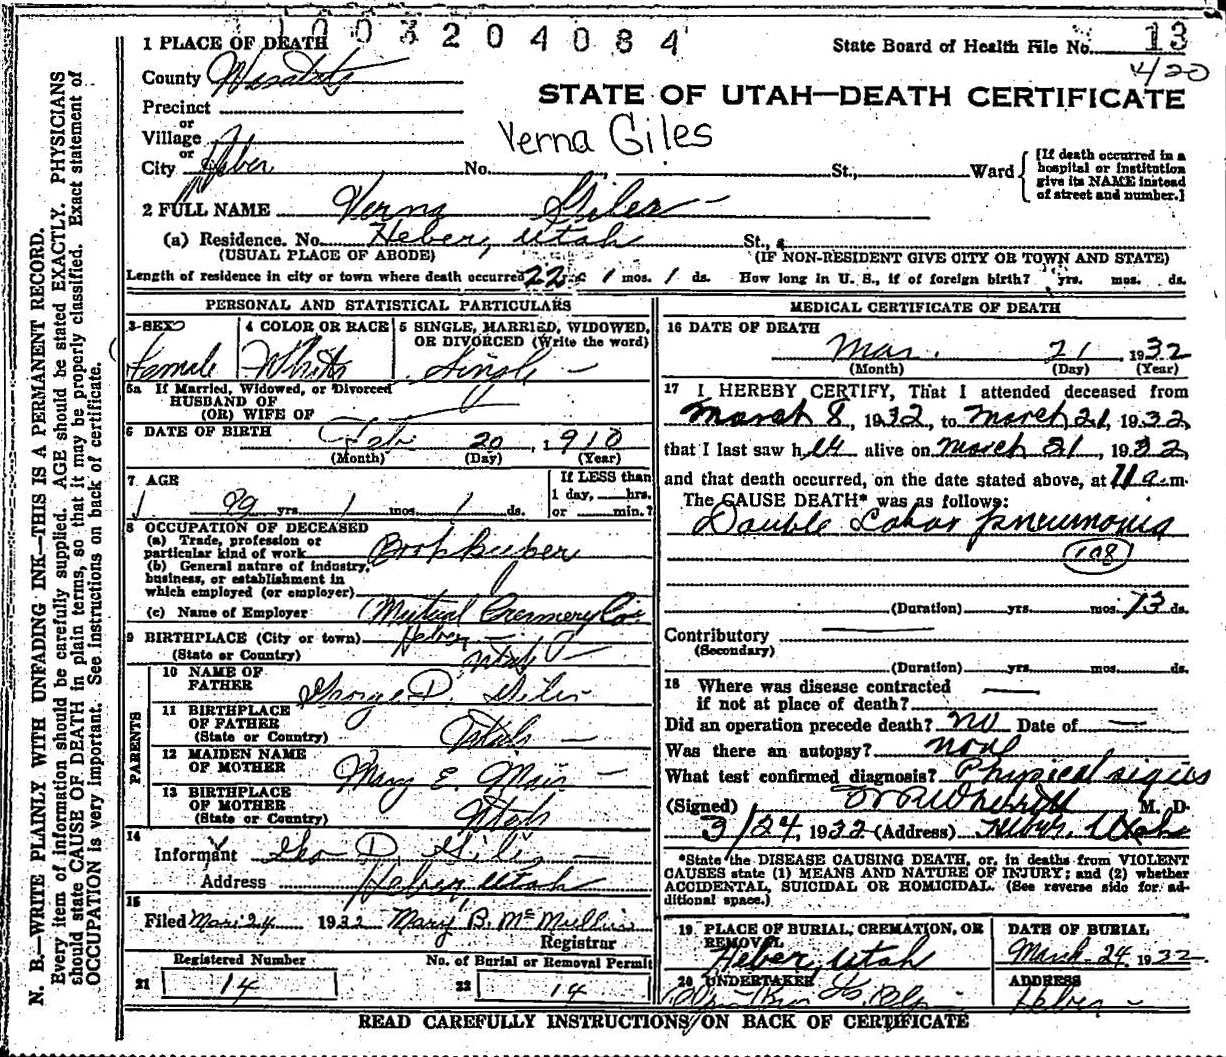 003204084
State Board of Health File No. 13
420
1 PLACE OF DEATH
County Wasatch
STATE OF UTAH—DEATH CERTIFICATE
Precinct
or
Village
Verna Giles
or
City Heber No. St., Ward
[If death occurred in a
hospital or institution
give its NAME instead
of street and number.]
2 FULL NAME Verna Giles
(a) Residence. No. Heber, Utah St.,
(USUAL PLACE OF ABODE) (IF NON-RESIDENT GIVE CITY OR TOWN AND STATE)
Length of residence in city or town where death occurred 22 yrs. 1 mos. 1 ds. How long in U. S., if of foreign birth? yrs. mos. ds.
PERSONAL AND STATISTICAL PARTICULARS
3 SEX
Female
4 COLOR OR RACE
White
5 SINGLE, MARRIED, WIDOWED,
OR DIVORCED (Write the word)
Single
5a If Married, Widowed, or Divorced
HUSBAND OF
(OR) WIFE OF
6 DATE OF BIRTH Feb 20, 1910
(Month) (Day) (Year)
7 AGE
yrs. 1 mos. 1 ds.
If LESS than
1 day, hrs.
or min.?
8 OCCUPATION OF DECEASED
(a) Trade, profession or
particular kind of work Bookkeeper
(b) General nature of industry,
business, or establishment in
which employed (or employer)
(c) Name of Employer Mutual Creamery Co.
9 BIRTHPLACE (City or town) Heber
(State or Country) Utah
PARENTS
10 NAME OF
FATHER George D. Giles
11 BIRTHPLACE
OF FATHER
(State or Country) Utah
12 MAIDEN NAME
OF MOTHER Mary E. Mair
13 BIRTHPLACE
OF MOTHER
(State or Country) Utah
14
Informant Geo D. Giles
Address Heber, Utah
15
Filed Mar 24 1932 Mary B. McMullin
Registrar
Registered Number No. of Burial or Removal Permit
21 14 22 14
MEDICAL CERTIFICATE OF DEATH
16 DATE OF DEATH
Mar. 21, 1932
(Month) (Day) (Year)
17 I HEREBY CERTIFY, That I attended deceased from
March 8, 1932, to March 21, 1932,
that I last saw her alive on March 21, 1932,
and that death occurred, on the date stated above, at 11 a.m.
The CAUSE DEATH* was as follows:
Double Lobar pneumonia
108
(Duration) yrs. mos. 13 ds.
Contributory
(Secondary)
(Duration) yrs. mos. ds.
18 Where was disease contracted
if not at place of death?
Did an operation precede death? no Date of
Was there an autopsy? none
What test confirmed diagnosis? Physical signs
(Signed) M. D.
3/24 1932 (Address) Heber, Utah
*State the DISEASE CAUSING DEATH, or, in deaths from VIOLENT
CAUSES state (1) MEANS AND NATURE OF INJURY; and (2) whether
ACCIDENTAL, SUICIDAL OR HOMICIDAL. (See reverse side for additional space.)
19 PLACE OF BURIAL, CREMATION, OR
REMOVAL
Heber, Utah
DATE OF BURIAL
March 24 1932
20 UNDERTAKER
ADDRESS
Heber
READ CAREFULLY INSTRUCTIONS ON BACK OF CERTIFICATE
N. B.—WRITE PLAINLY WITH UNFADING INK—THIS IS A PERMANENT RECORD.
Every item of information should be carefully supplied. AGE should be stated EXACTLY. PHYSICIANS
should state CAUSE OF DEATH in plain terms, so that it may be properly classified. Exact statement of
OCCUPATION is very important. See instructions on back of certificate.